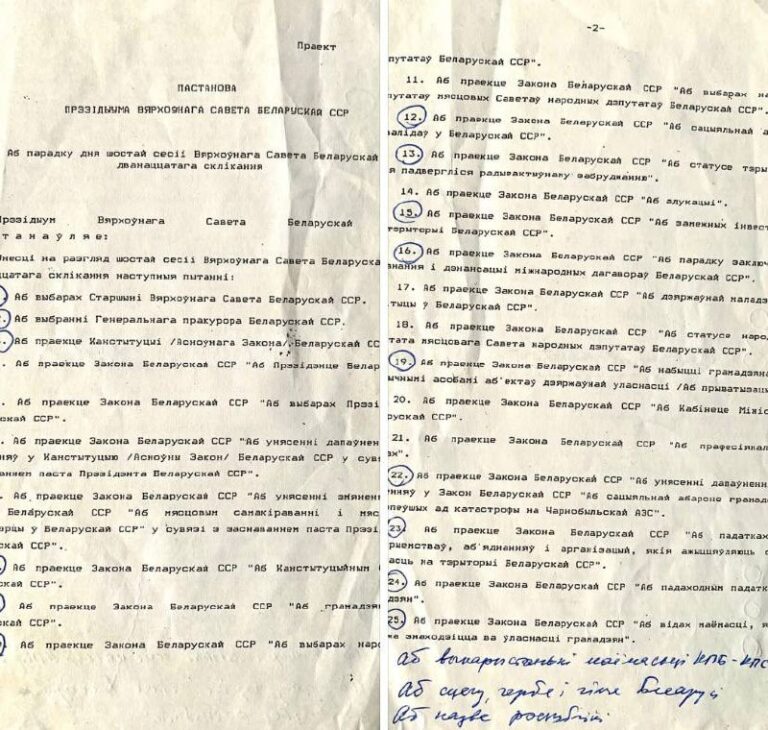 Праект
ПАСТАНОВА
ПРЭЗІДЫУМА ВЯРХОЎНАГА САВЕТА БЕЛАРУСКАЙ ССР
Аб парадку дня шостай сесіі Вярхоўнага Савета Беларускай
дванаццатага склікання
Прэзідыум Вярхоўнага Савета Беларускай
танаўляе:
Унесці на разгляд шостай сесіі Вярхоўнага Савета Беларуска
ццатага склікання наступныя пытанні:
. Аб выбарах Старшыні Вярхоўнага Савета Беларускай ССР.
. Аб выбранні Генеральнага пракурора Беларускай ССР.
. Аб праекце Канстытуцыі /Асноўнага Закона/ Беларускай СС
. Аб праекце Закона Беларускай ССР "Аб Прэзідэнце Белар
. Аб праекце Закона Беларускай ССР "Аб выбарах Прэзі
ускай ССР".
. Аб праекце Закона Беларускай ССР "Аб унясенні дапаўнен
няў у Канстытуцыю /Асноўны Закон/ Беларускай ССР у сувя
ваннем паста Прэзідэнта Беларускай ССР".
. Аб праекце Закона Беларускай ССР "Аб унясенні змянен
Беларускай ССР "Аб мясцовым самакіраванні і мяс
арцы ў Беларускай ССР" у сувязі з заснаваннем паста Прэзі
ускай ССР".
. Аб праекце Закона Беларускай ССР "Аб Канстытуцыйным
ускай ССР".
Аб праекце Закона Беларускай ССР "Аб грамадзян
ускай ССР".
. Аб праекце Закона Беларускай ССР "Аб выбарах нард
-2-
путатаў Беларускай ССР".
11. Аб праекце Закона Беларускай ССР "Аб выбарах на
путатаў мясцовых Саветаў народных дэпутатаў Беларускай ССР".
12. Аб праекце Закона Беларускай ССР "Аб сацыяльнай а
валідаў у Беларускай ССР".
13. Аб праекце Закона Беларускай ССР "Аб статусе тэры
я падвергліся радыяактыўнаму забруджанню".
14. Аб праекце Закона Беларускай ССР "Аб адукацыі".
15. Аб праекце Закона Беларускай ССР "Аб замежных інвест
тэрыторыі Беларускай ССР".
16. Аб праекце Закона Беларускай ССР "Аб парадку заключ
нання і дэнансацыі міжнародных дагавораў Беларускай ССР".
17. Аб праекце Закона Беларускай ССР "Аб дзяржаўнай маладз
тыцы ў Беларускай ССР".
18. Аб праекце Закона Беларускай ССР "Аб статусе наро
тата мясцовага Савета народных дэпутатаў Беларускай ССР".
19. Аб праекце Закона Беларускай ССР "Аб набыцці грамадзяна
ычнымі асобамі аб'ектаў дзяржаўнай уласнасці /Аб прыватызац
20. Аб праекце Закона Беларускай ССР "Аб Кабінеце Мініс
рускай ССР".
21. Аб праекце Закона Беларускай ССР "Аб прафесіянал
ах".
22. Аб праекце Закона Беларускай ССР "Аб унясенні дапаўненн
нняў у Закон Беларускай ССР "Аб сацыяльнай абароне грамадз
рпеўшых ад катастрофы на Чарнобыльскай АЭС".
23. Аб праекце Закона Беларускай ССР "Аб падатках
рыемстваў, аб'яднанняў і арганізацый, якія ажыццяўляюць
асць на тэрыторыі Беларускай ССР".
24. Аб праекце Закона Беларускай ССР "Аб падаходным падатк
дзян".
25. Аб праекце Закона Беларускай ССР "Аб відах маёмасці, я
жа знаходзіцца ва ўласнасці грамадзян".
Аб выкарыстаньні маёмасьці КПБ-КПС
Аб сцягу, гербе і гімне Беларусі
Аб назве рэспублікі